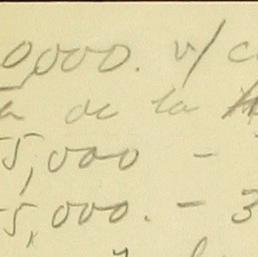 0,000. v/ c
a de la
5,000 -
5,000. - 3